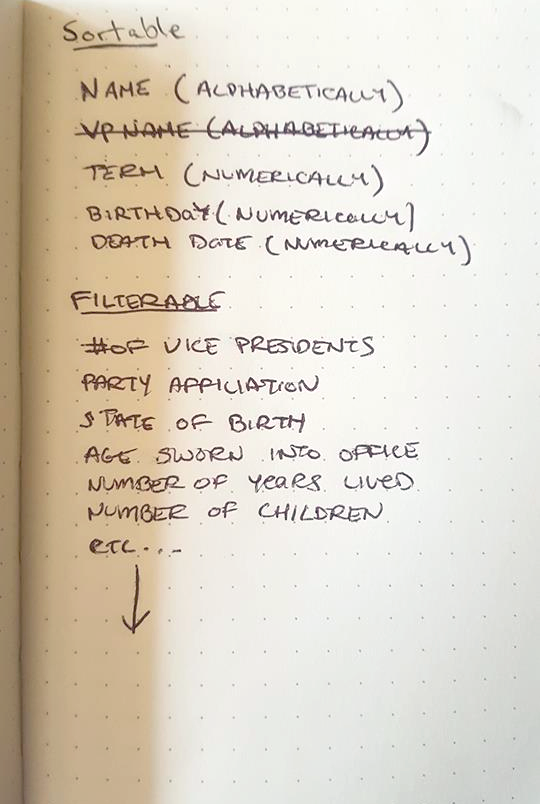 Sortable
NAME (ALPHABETICALLY)
VP NAME (ALPHABETICALLY)
TERM (NUMERICALLY)
BIRTHDAY (NUMERICALLY)
DEATH DATE (NUMERICALLY)
FILTERABLE
# OF VICE PRESIDENTS
PARTY AFFILIATION
STATE OF BIRTH
AGE SWORN INTO OFFICE
NUMBER OF YEARS LIVED
NUMBER OF CHILDREN
etc...